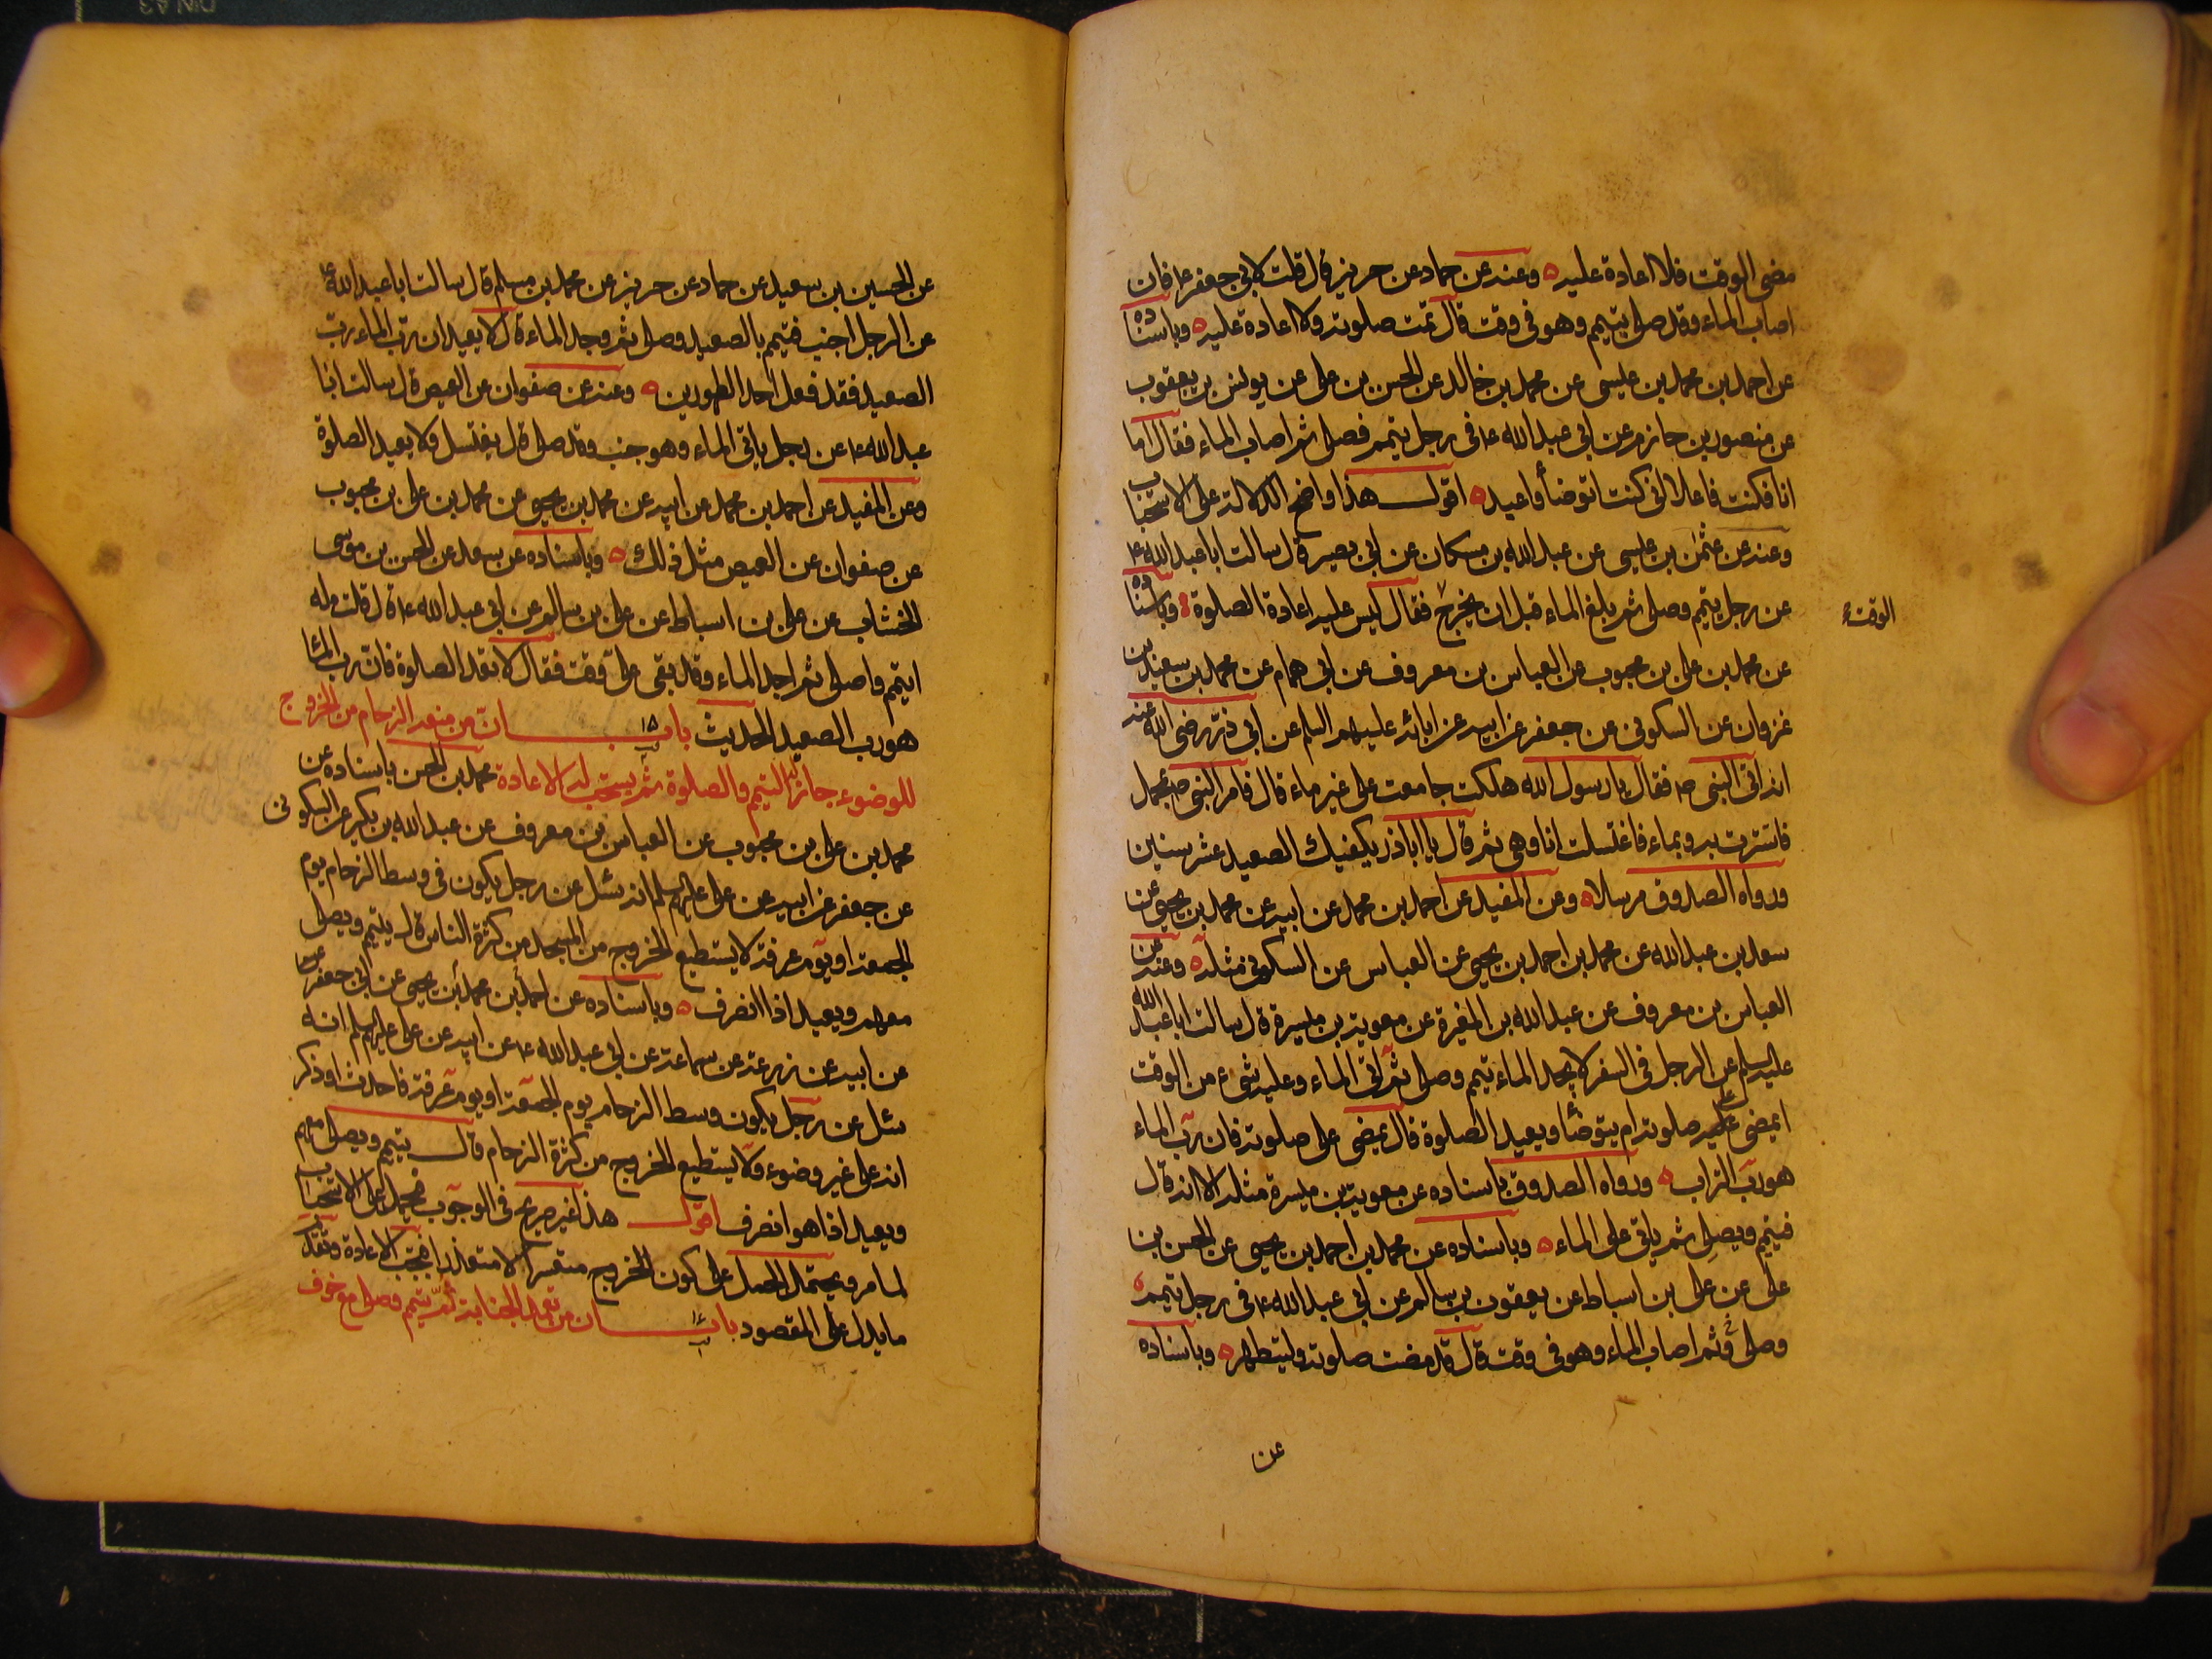 مضى الوقت فلا اعادة عليه ه وعنه عن حماد عن حريز قال قلت لابي جعفر ع فان
اصاب الماء وقد صلى بتيمم وهو في وقت قال تمت صلوته ولا اعادة عليه ه وباسناده
عن احمد بن محمد بن عيسى عن محمد بن خالد عن الحسن بن على عن يونس بن يعقوب
عن منصور بن حازم عن ابي عبد الله ع في رجل تيمم فصلى ثم اصاب الماء فقال اما
انا فكنت فاعلا اني كنت اتوضأ واعيد ه اقول هذا واضح الدلالة على الاستحباب
وعنه عن عثمن بن عيسى عن عبد الله بن مسكان عن ابي بصير قال سالت ابا عبد الله ع
عن رجل تيمم وصلى ثم بلغ الماء قبل ان يخرج فقال ليس عليه اعادة الصلوة ه وباسناده
الوقت
عن محمد بن على بن محبوب عن العباس بن معروف عن ابي همام عن محمد بن سعيد بن
غزوان عن السكوني عن جعفر عن ابيه عن ابائه عليهم السلم عن ابي ذر رضي الله عنه
انه اتى النبى ص فقال يا رسول الله هلكت جامعت على غير ماء قال فامر النبى ص بمحمل
فاستترت به وبماء فاغتسلت انا وهى ثم قال يا اباذر يكفيك الصعيد عشر سنين
ورواه الصدوق مرسلا ه وعن المفيد عن احمد بن محمد عن ابيه عن محمد بن يحيى عن
سعد بن عبد الله عن محمد بن احمد بن يحيى عن العباس عن السكوني مثله ه وعنه عن
العباس بن معروف عن عبد الله بن المغيرة عن معوية بن ميسرة قال سالت ابا عبد الله
عليه السلم عن الرجل في السفر لا يجد الماء تيمم وصلى ثم اتى الماء وعليه شيء من الوقت
ايمضى على صلوته ام يتوضأ ويعيد الصلوة قال يمضى على صلوته فان رب الماء
هو رب التراب ه ورواه الصدوق باسناده عن معوية بن ميسرة مثله الا انه قال
فيتيمم ويصلى ثم ياتى على الماء ه وباسناده عن محمد بن احمد بن يحيى عن الحسن بن
على عن على بن اسباط عن يعقوب بن سالم عن ابي عبد الله ع في رجل تيمم
وصلى ثم اصاب الماء وهو في وقت قال قد مضت صلوته وليتطهر ه وباسناده
عن
عن الحسين بن سعيد عن حماد عن حريز عن محمد بن مسلم قال سالت ابا عبد الله ع
عن الرجل اجنب فتيمم بالصعيد وصلى ثم وجد الماء قال لا يعيد ان رب الماء رب
الصعيد فقد فعل احد الطهورين ه وعنه عن صفوان عن العيص قال سالت ابا
عبد الله ع عن رجل ياتى الماء وهو جنب وقد صلى قال يغتسل ولا يعيد الصلوة
وعن المفيد عن احمد بن محمد عن ابيه عن محمد بن يحيى عن محمد بن على بن محبوب
عن صفوان عن العيص مثل ذلك ه وباسناده عن سعد عن الحسن بن موسى
الخشاب عن على بن اسباط عن على بن سالم عن ابي عبد الله ع قال قلت له
اتيمم واصلى ثم اجد الماء وقد بقى على وقت فقال لا تعد الصلوة فان رب الماء
هو رب الصعيد الحديث باب ان من منعه الزحام من الخروج
للوضوء جاز له التيمم والصلوة ثم يستحب له الاعادة محمد بن الحسن باسناده عن
محمد بن على بن محبوب عن العباس بن معروف عن عبد الله بن بكير عن السكونى
عن جعفر عن ابيه عن على عليهم السلم انه سئل عن رجل يكون في وسط الزحام يوم
الجمعة او يوم عرفة لا يستطيع الخروج من المسجد من كثرة الناس قال يتيمم ويصلى
معهم ويعيد اذا انصرف ه وباسناده عن احمد بن محمد بن يحيى عن ابي جعفر
عن ابيه عن زرعة عن سماعة عن ابي عبد الله ع عن ابيه عن على عليهم السلم انه
سئل عن رجل يكون وسط الزحام يوم الجمعة او يوم عرفة فاحدث او ذكر
انه على غير وضوء ولا يستطيع الخروج من كثرة الزحام قال يتيمم ويصلى معهم
ويعيد اذا هو انصرف اقول هذا غير صريح في الوجوب فيحمل على الاستحباب
لما مر ويحتمل الحمل على كون الخروج متعسرا لا متعذرا فتجب الاعادة وتقدم
ما يدل على المقصود باب ان من تعمد الجنابة ثم تيمم وصلى مع خوف